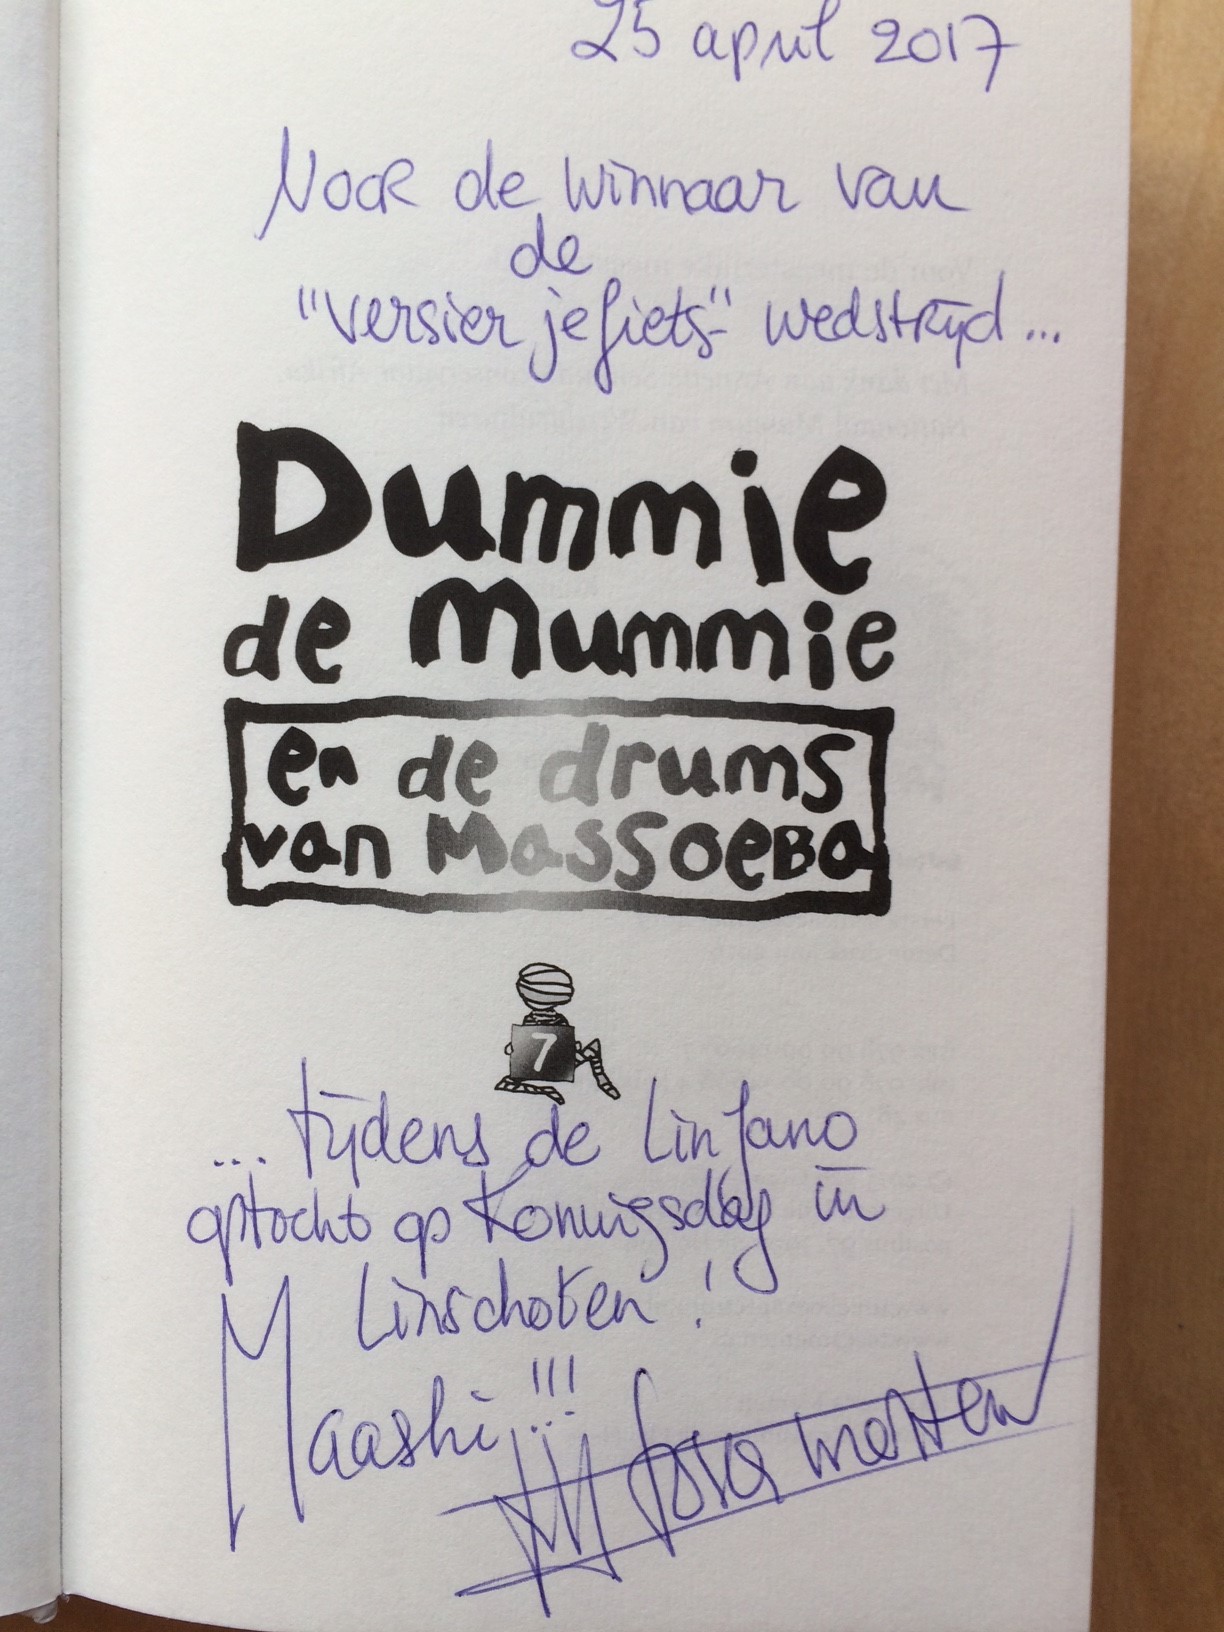 25 april 2017
Voor de winnaar van
de
"versier je fiets-" wedstrijd...
Dummie
de Mummie
en de drums
van Massoeba
7
... tijdens de Linfano
optocht op Koningsdag in
Linschoten!
Maashi!!!
Tosca Menten